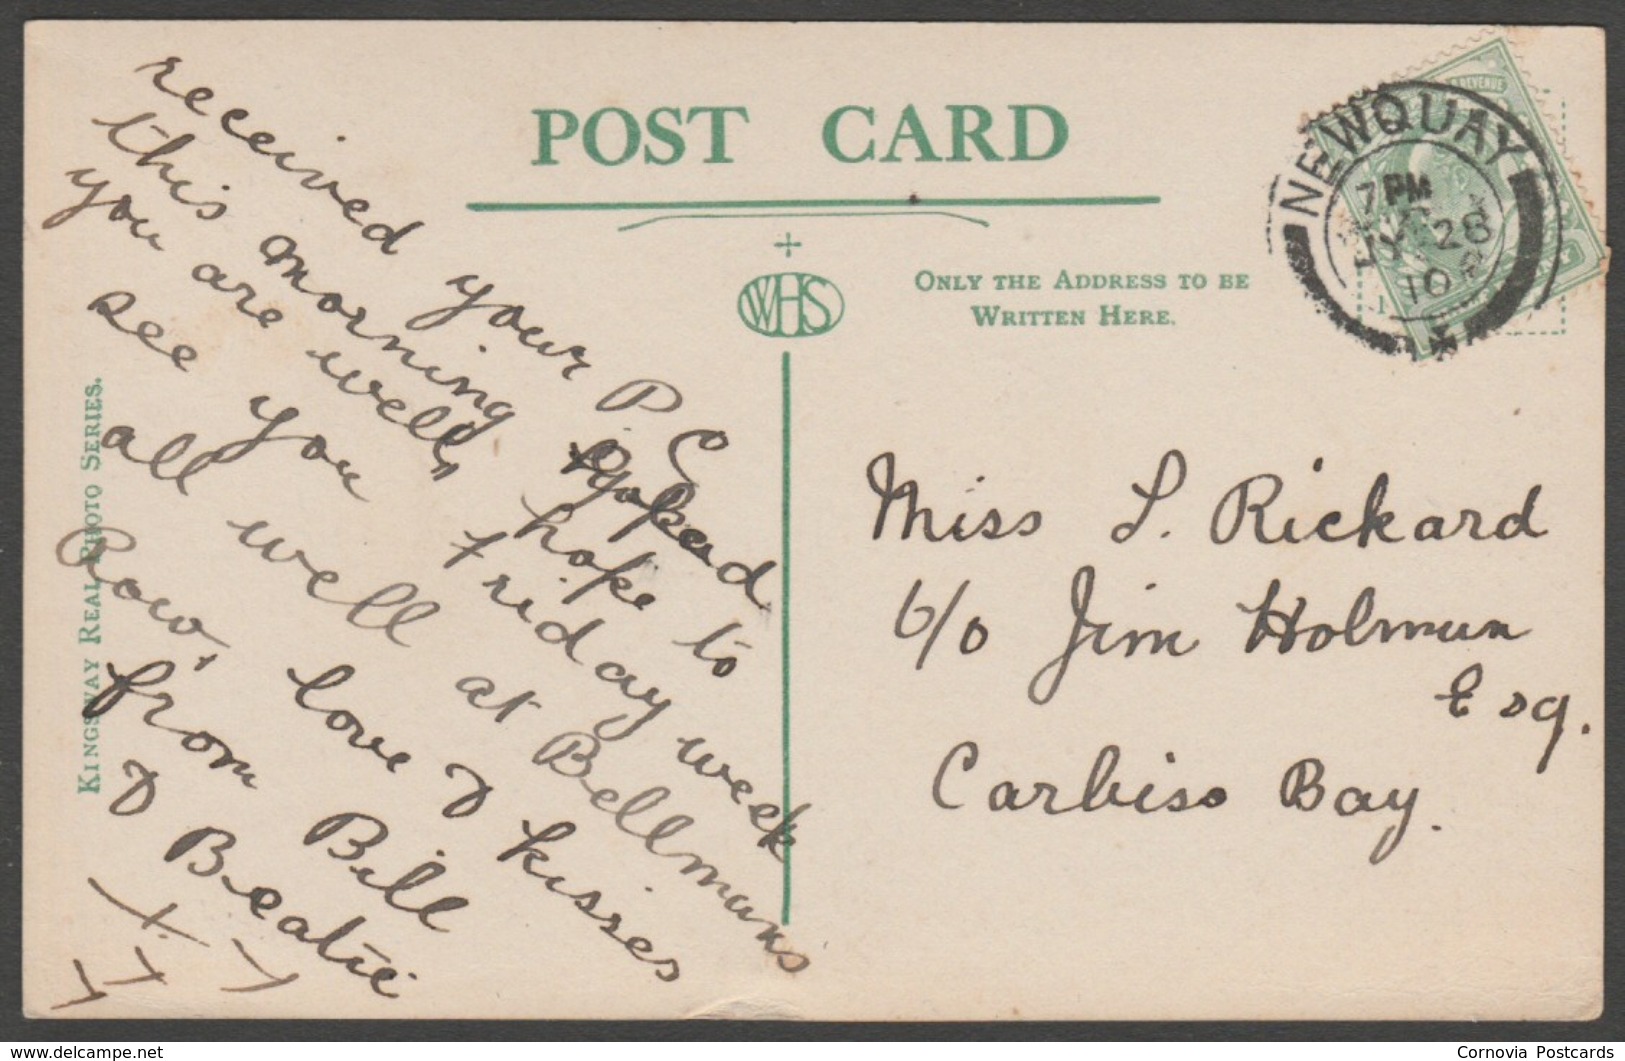 POST CARD
WHS
ONLY THE ADDRESS TO BE
WRITTEN HERE.
KINGSWAY REAL PHOTO SERIES.
NEWQUAY
7 PM
JY 28
10
REVENUE
received your P C
this morning
you are well, hope to
see you Friday week
all well at Bellmans
Row, love & kisses
from Bill
& Beatie
Miss L. Rickard
c/o Jim Holman
Esq.
Carbiso Bay.
delcampe.net
Cornovia Postcards